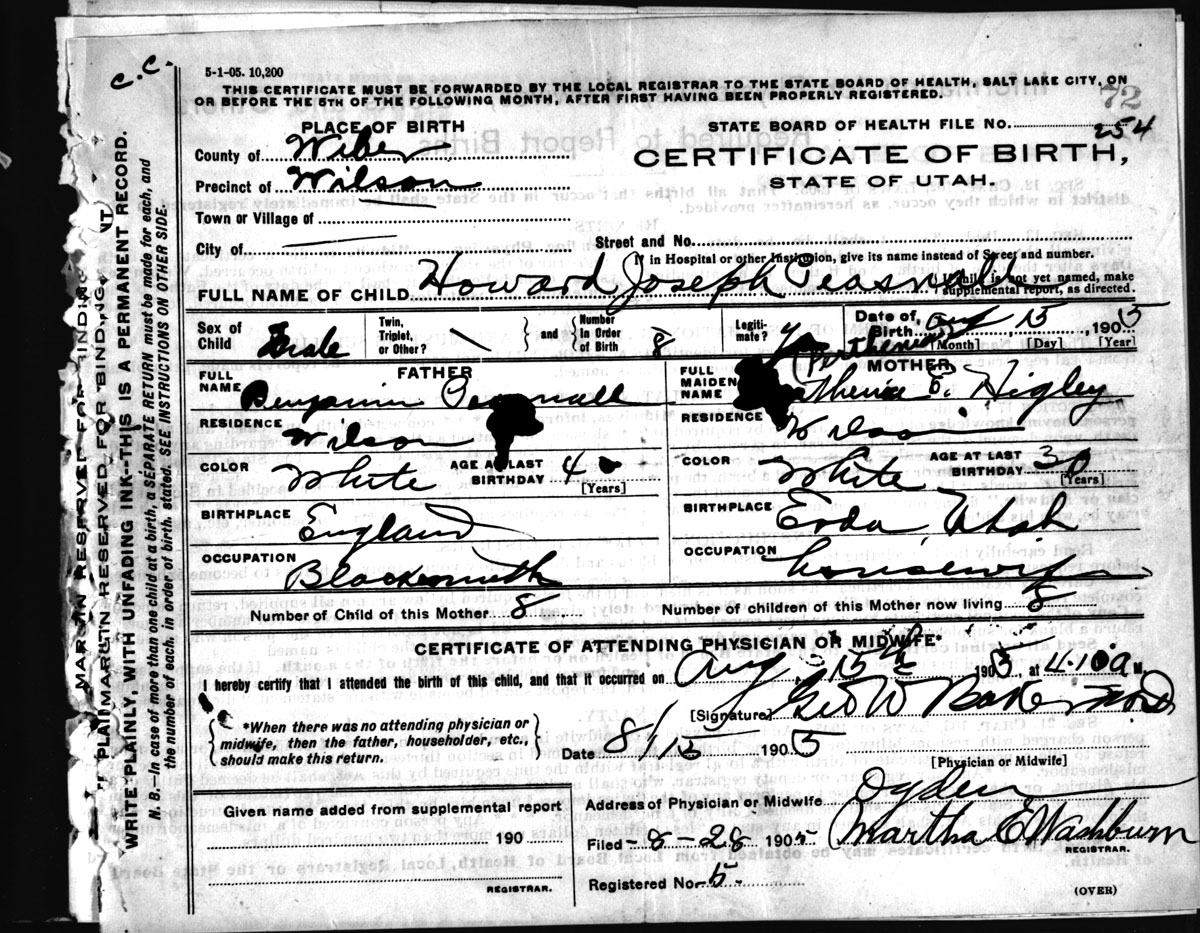 C.C.
5-1-05. 10,200
THIS CERTIFICATE MUST BE FORWARDED BY THE LOCAL REGISTRAR TO THE STATE BOARD OF HEALTH, SALT LAKE CITY, ON
OR BEFORE THE 5TH OF THE FOLLOWING MONTH, AFTER FIRST HAVING BEEN PROPERLY REGISTERED.
72
PLACE OF BIRTH
STATE BOARD OF HEALTH FILE No. 254
County of Weber
CERTIFICATE OF BIRTH,
Precinct of Wilson
STATE OF UTAH.
Town or Village of
City of
Street and No.
If in Hospital or other Institution, give its name instead of Street and number.
FULL NAME OF CHILD Howard Joseph Peasnall
If child is not yet named, make
supplemental report, as directed.
Sex of Child Male
Twin, Triplet, or Other?
and
Number in Order of Birth 8
Legitimate? y
Date of Birth Aug 15, 1905
[Month] [Day] [Year]
FATHER
FULL NAME Benjamin Peasnall
RESIDENCE Wilson
COLOR White
AGE AT LAST BIRTHDAY 40
[Years]
BIRTHPLACE England
OCCUPATION Blacksmith
MOTHER
FULL MAIDEN NAME Parthenia E. Higley
RESIDENCE Wilson
COLOR White
AGE AT LAST BIRTHDAY 30
[Years]
BIRTHPLACE Erda, Utah
OCCUPATION housewife
Number of Child of this Mother 8
Number of children of this Mother now living 8
CERTIFICATE OF ATTENDING PHYSICIAN OR MIDWIFE*
I hereby certify that I attended the birth of this child, and that it occurred on Aug 15th 1905, at 4.10 a M.
*When there was no attending physician or
midwife, then the father, householder, etc.,
should make this return.
[Signature] Geo W Baker
Date 8/15 1905
[Physician or Midwife]
Given name added from supplemental report
190
REGISTRAR.
Address of Physician or Midwife Ogden
Filed 8-28 1905 Martha E Washburn
REGISTRAR.
Registered No. 5
(OVER)
MARGIN RESERVED FOR BINDING
MARGIN RESERVED FOR BINDING
WRITE PLAINLY, WITH UNFADING INK--THIS IS A PERMANENT RECORD.
N. B.--In case of more than one child at a birth, a SEPARATE RETURN must be made for each, and
the number of each, in order of birth, stated. SEE INSTRUCTIONS ON OTHER SIDE.